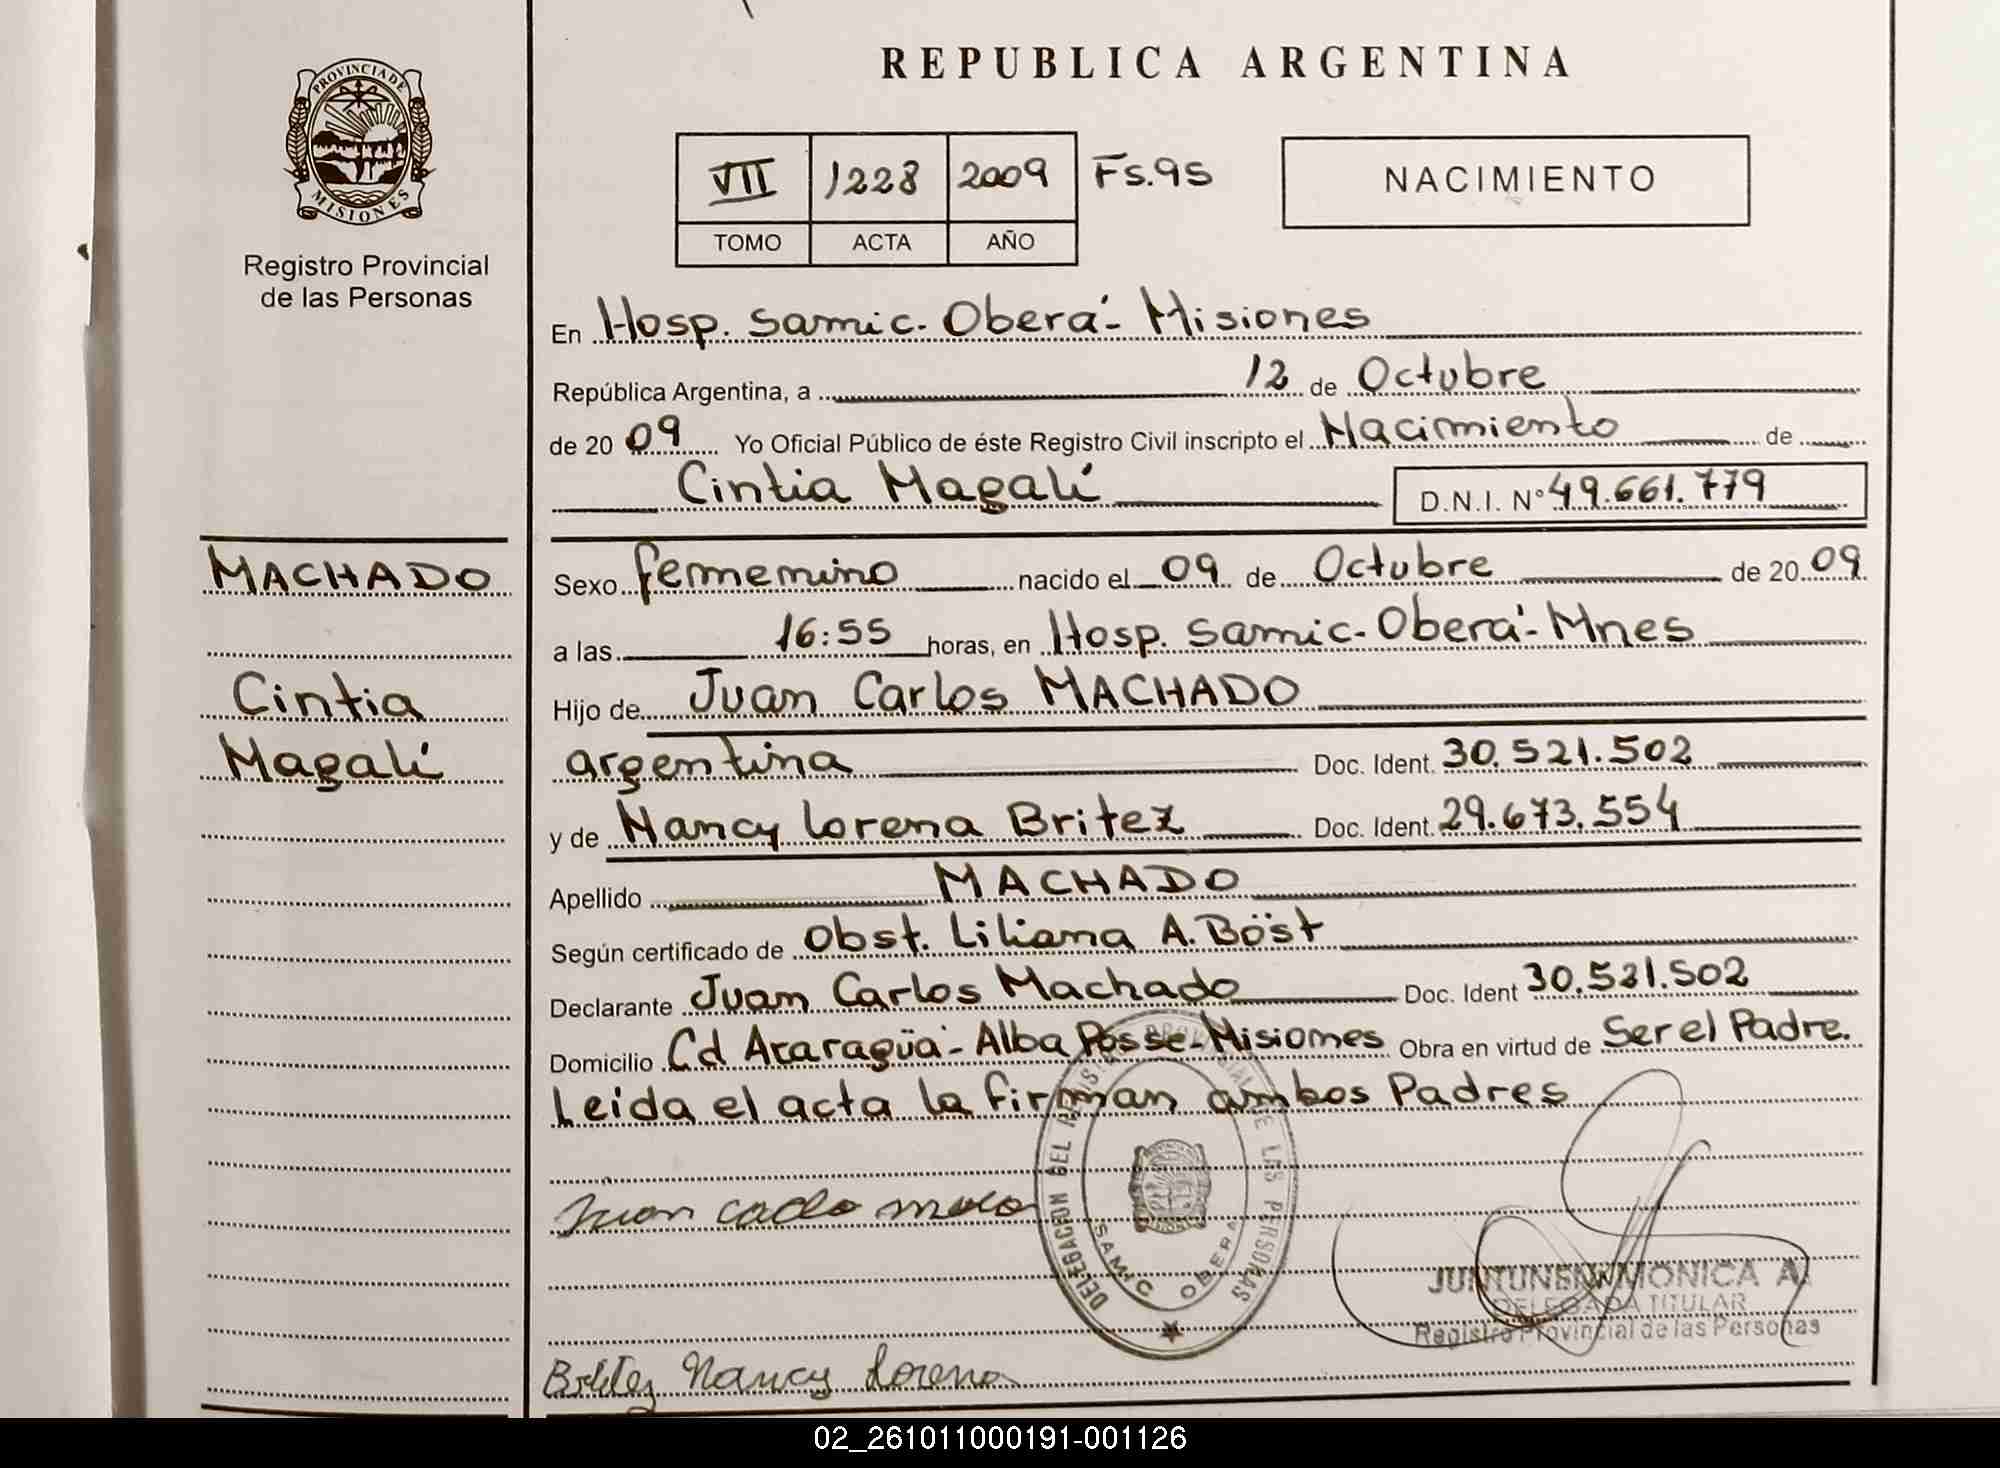 REPUBLICA ARGENTINA
PROVINCIA DE
MISIONES
Registro Provincial
de las Personas
VII 1228 2009 Fs.95
TOMO ACTA AÑO
NACIMIENTO
En Hosp. Samic. Oberá- Misiones
República Argentina, a 12 de Octubre
de 2009 Yo Oficial Público de éste Registro Civil inscripto el Nacimiento de
Cintia Magalí D.N.I. N° 49.661.779
MACHADO
Cintia
Magalí
Sexo femenino nacido el 09 de Octubre de 2009
a las 16:55 horas, en Hosp. Samic- Oberá- Mnes
Hijo de Juan Carlos MACHADO
argentina Doc. Ident. 30.521.502
y de Nancy Lorena Britez Doc. Ident. 29.673.554
Apellido MACHADO
Según certificado de Obst. Liliana A. Böst
Declarante Juan Carlos Machado Doc. Ident 30.521.502
Domicilio Cd Acaragüá- Alba Posse- Misiones Obra en virtud de Ser el Padre.
Leida el acta la firman ambos Padres
DELEGACION DEL REGISTRO PROVINCIAL DE LAS PERSONAS
SAMIC OBERA
Juan
JUNTUNEN MONICA A.
DELEGADA TITULAR
Registro Provincial de las Personas
Britez Nancy Lorena
02_261011000191-001126